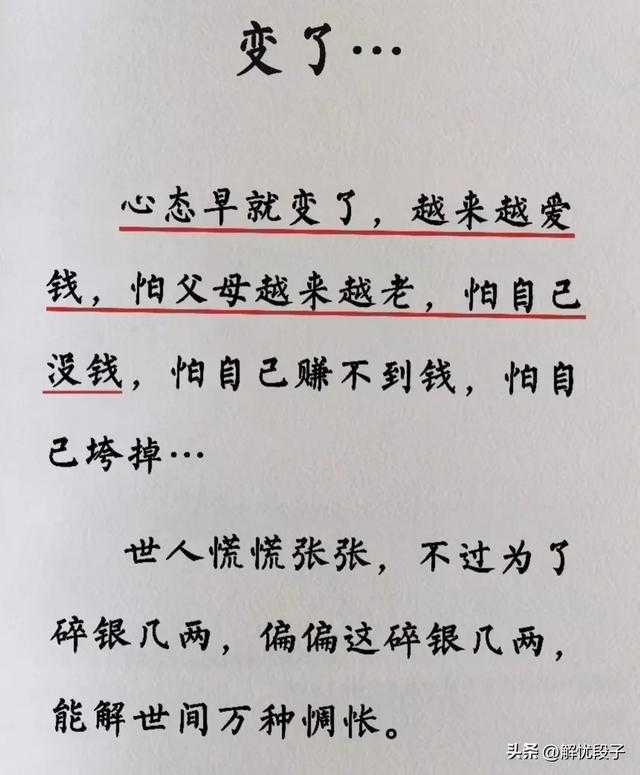 变了…
心态早就变了，越来越爱
钱，怕父母越来越老，怕自己
没钱，怕自己赚不到钱，怕自
己垮掉…
世人慌慌张张，不过为了
碎银几两，偏偏这碎银几两，
能解世间万种惆怅。
头条 @解忧段子